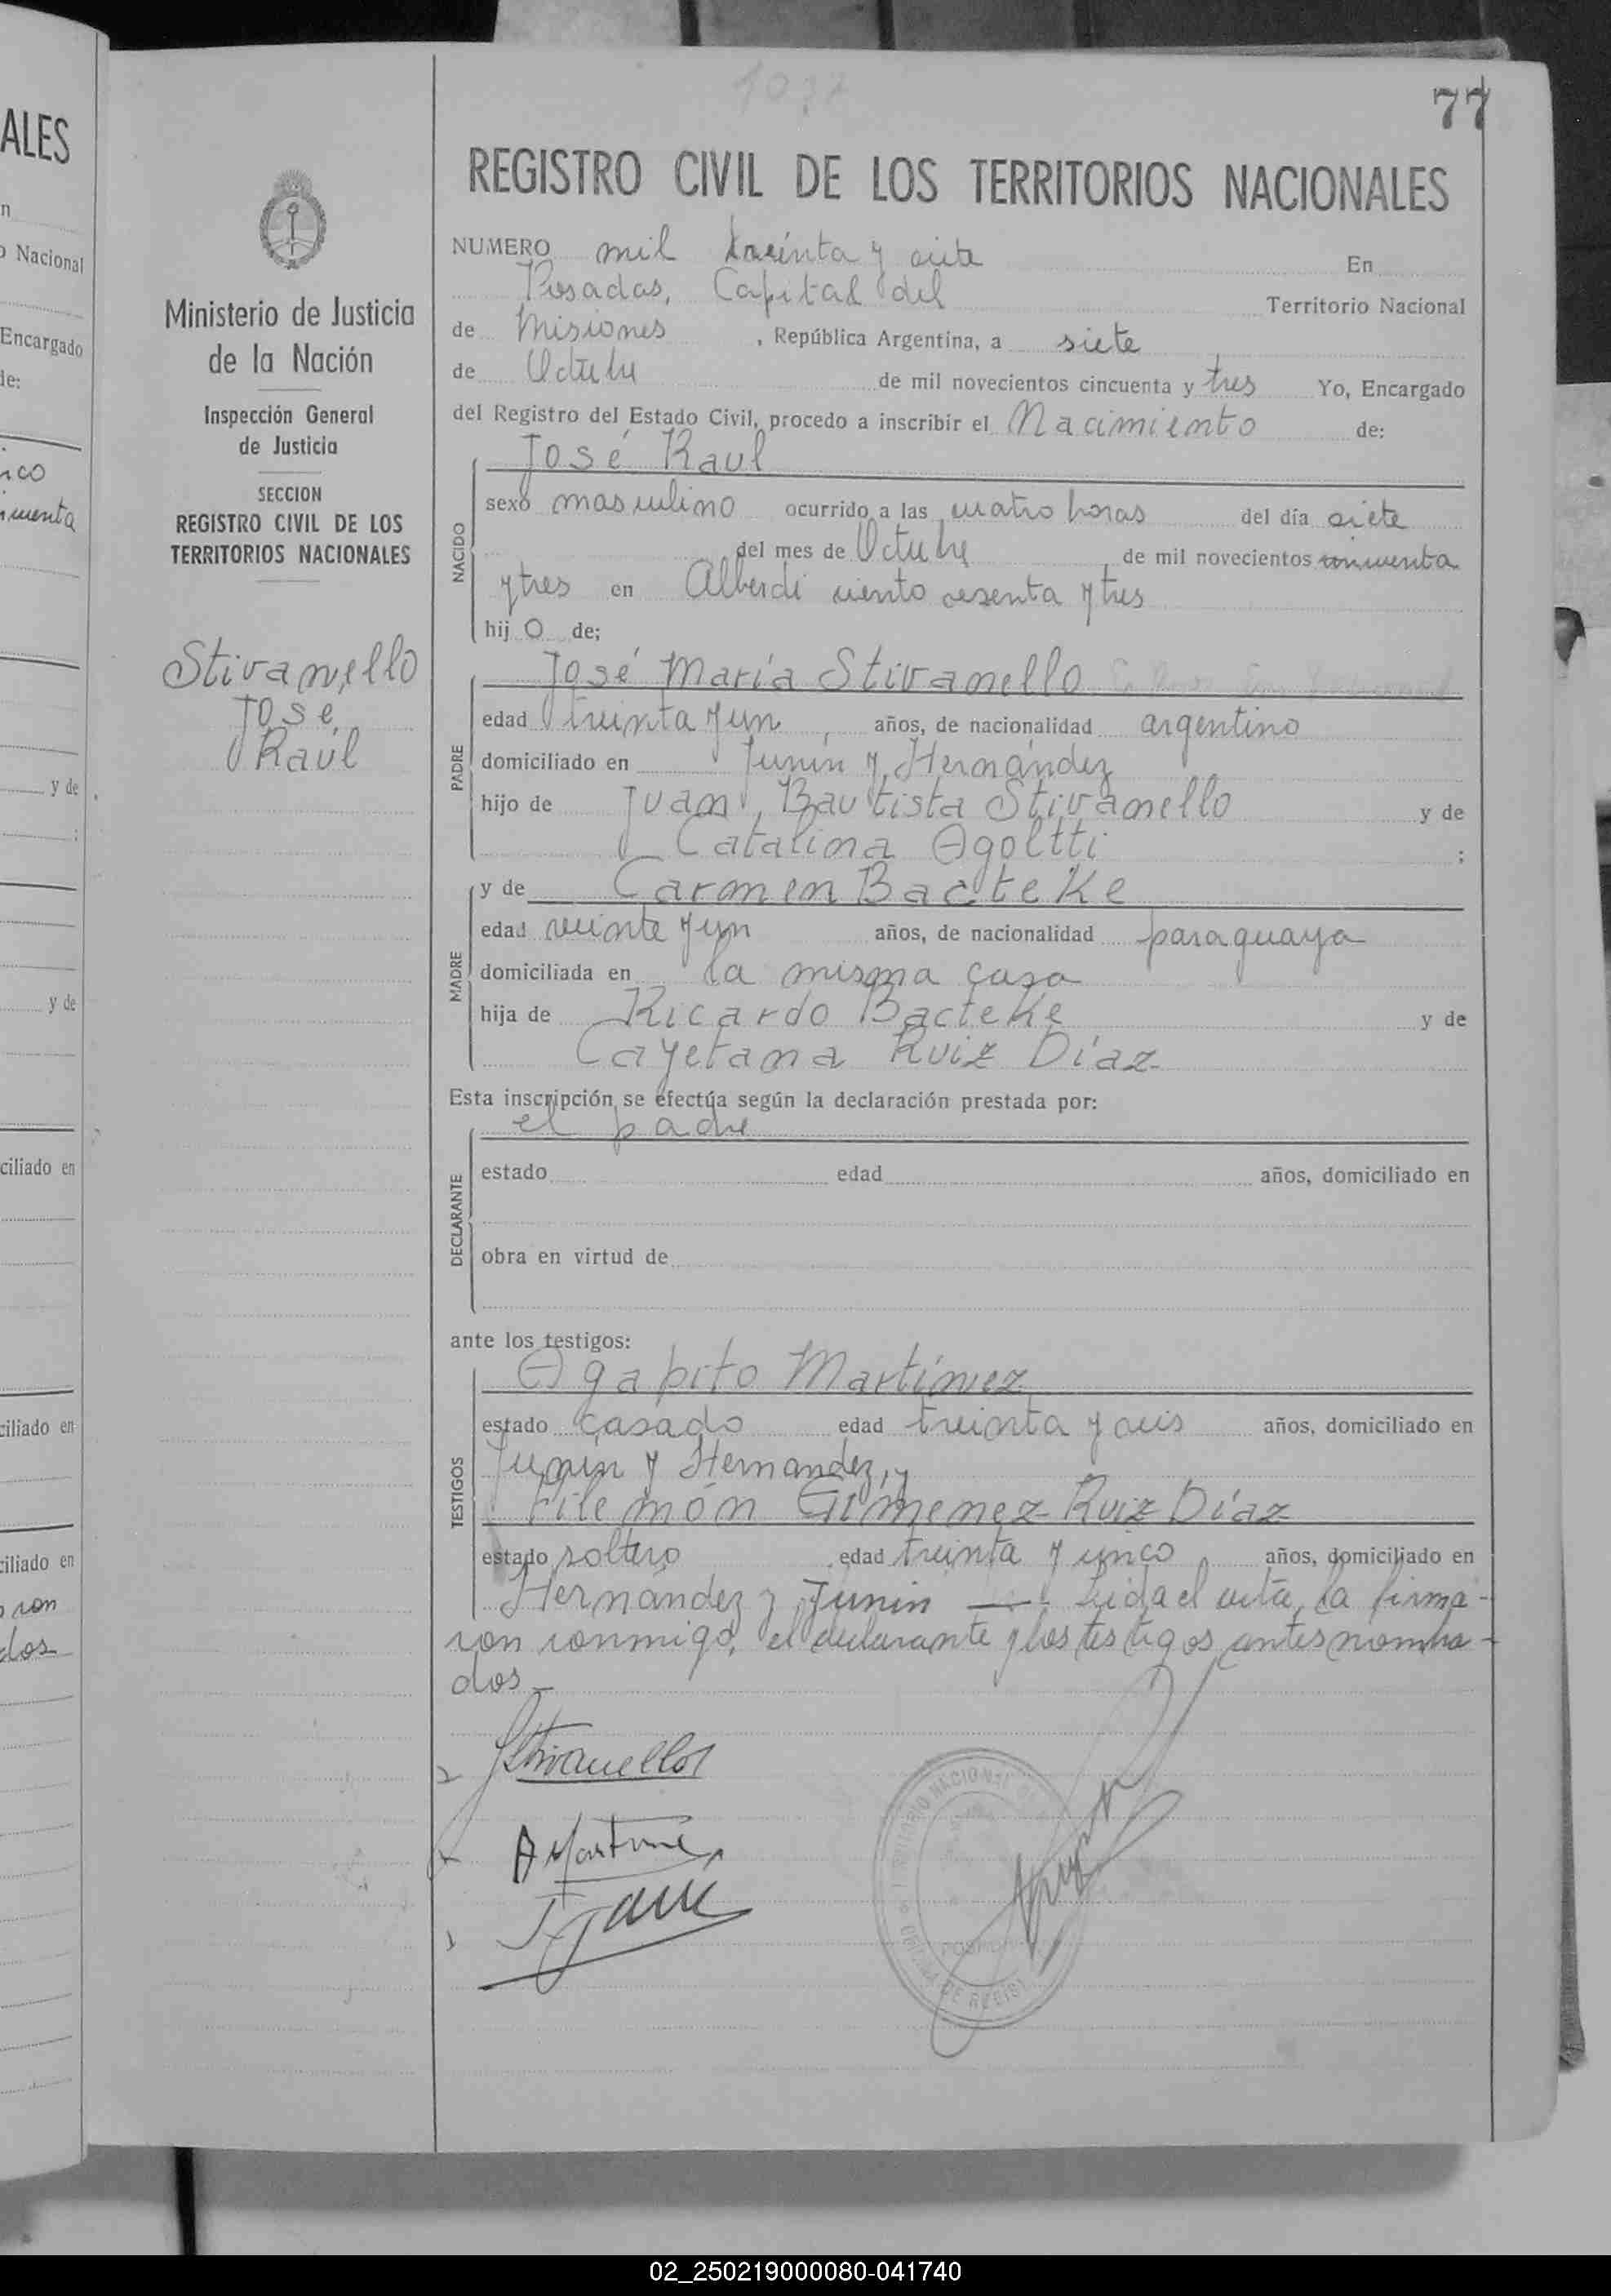 77
REGISTRO CIVIL DE LOS TERRITORIOS NACIONALES
NUMERO mil treinta y siete En
Posadas, Capital del Territorio Nacional
de Misiones , República Argentina, a siete
de Octubre de mil novecientos cincuenta y tres Yo, Encargado
del Registro del Estado Civil, procedo a inscribir el Nacimiento de:
José Raul
NACIDO
sexo masculino ocurrido a las cuatro horas del día siete
del mes de Octubre de mil novecientos cincuenta
y tres en Alberdi ciento sesenta y tres
hij o de;
José María Stivanello
PADRE
edad treinta y un años, de nacionalidad argentino
domiciliado en Junín y Hernández
hijo de Juan Bautista Stivanello y de
Catalina Agoltti ;
y de Carmen Bacteke
MADRE
edad veinte y un años, de nacionalidad paraguaya
domiciliada en la misma casa
hija de Ricardo Bacteke y de
Cayetana Ruiz Díaz
Esta inscripción se efectúa según la declaración prestada por:
el padre
DECLARANTE
estado edad años, domiciliado en
obra en virtud de
ante los testigos:
Agapito Martínez
TESTIGOS
estado casado edad treinta y seis años, domiciliado en
Junín y Hernandez, y
Filemón Gimenez Ruiz Díaz
estado soltero edad treinta y cinco años, domiciliado en
Hernández y Junín — Leida el acta, la firma-
ron conmigo, el declarante y los testigos antes nombra-
dos —
JStivanello
A Martine
Ministerio de Justicia
de la Nación
Inspección General
de Justicia
SECCION
REGISTRO CIVIL DE LOS
TERRITORIOS NACIONALES
Stivanello
José
Raúl
ALES
o Nacional
Encargado
de:
y de
y de
ciliado en
ciliado en
ciliado en
ron
dos
02_250219000080-041740